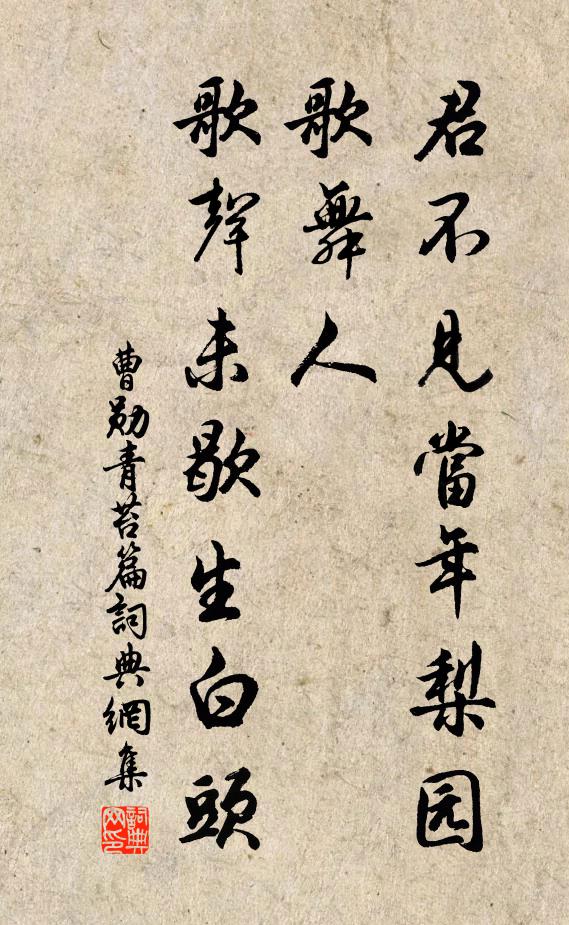 君不見當年梨园
歌舞人
歌聲未歇生白頭
曹勛青苔篇詞典網集
詞典网印